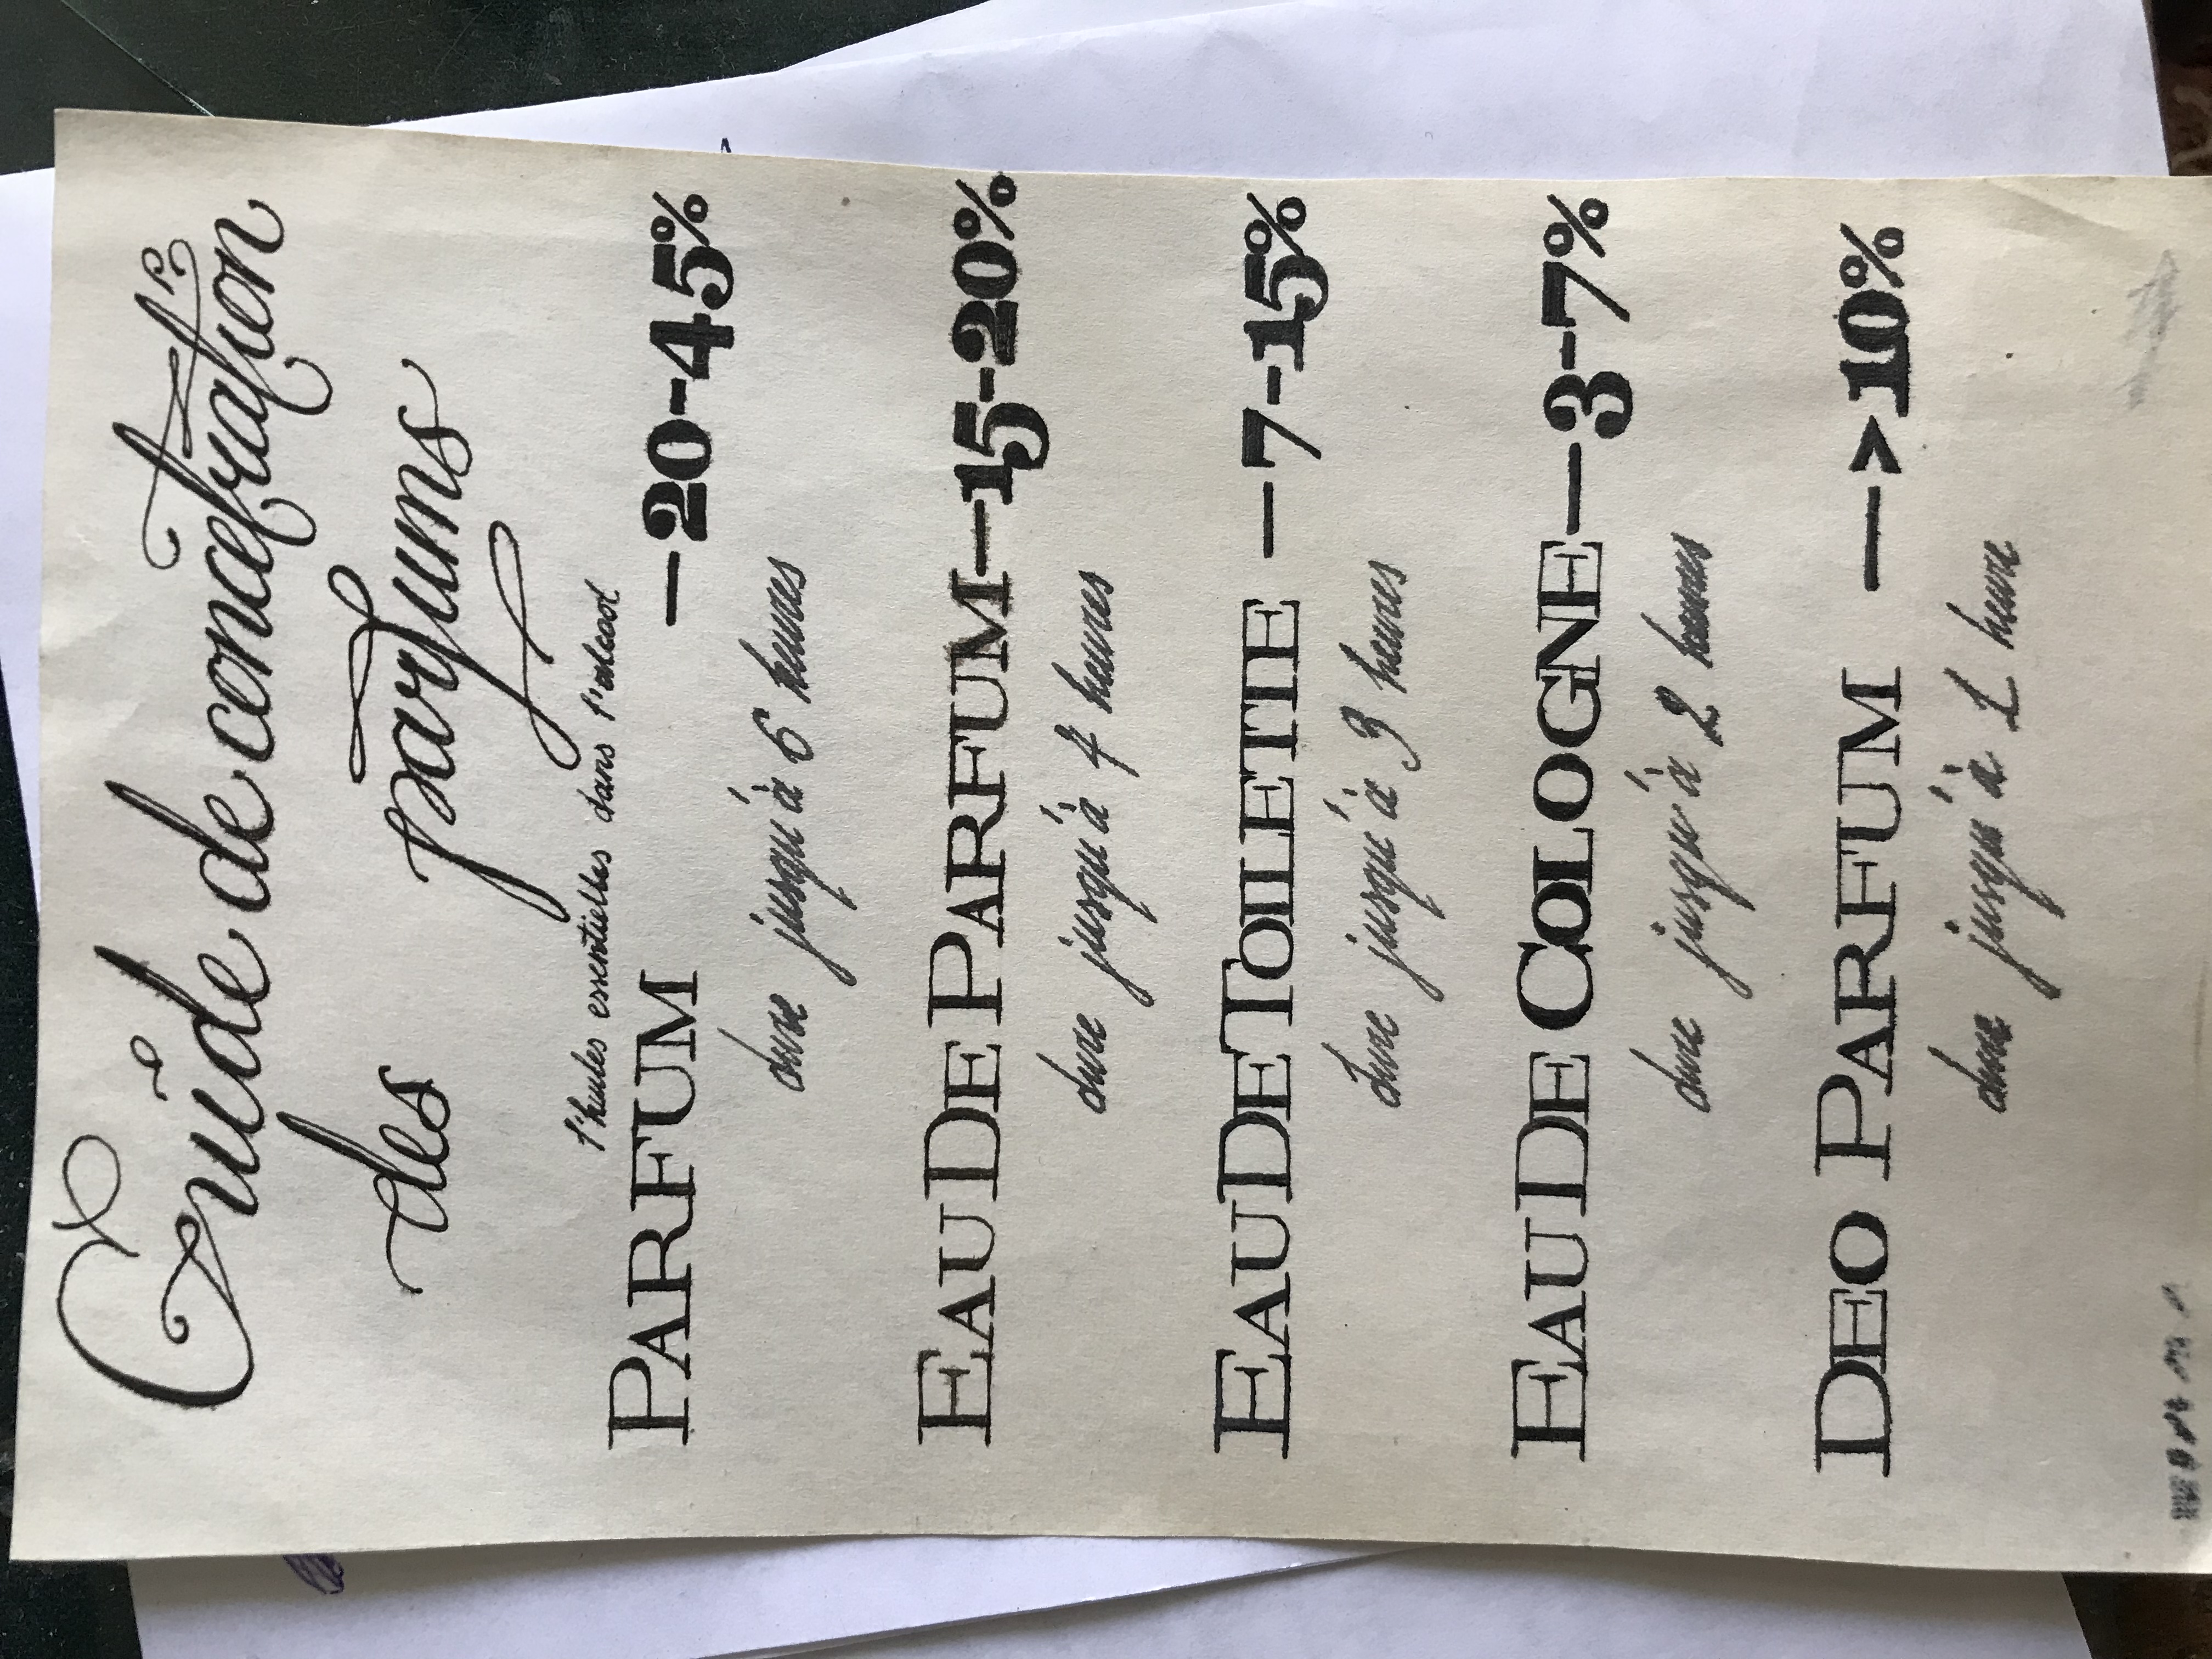 Guide de concentration
des parfums
l'huiles essentielles dans l'alcool
PARFUM —20-45%
dure jusqu'à 6 heures
EAU DE PARFUM—15-20%
dure jusqu'à 4 heures
EAU DE TOILETTE —7-15%
dure jusqu'à 3 heures
EAU DE COLOGNE—3-7%
dure jusqu'à 2 heures
DEO PARFUM —>10%
dure jusqu'à 1 heure